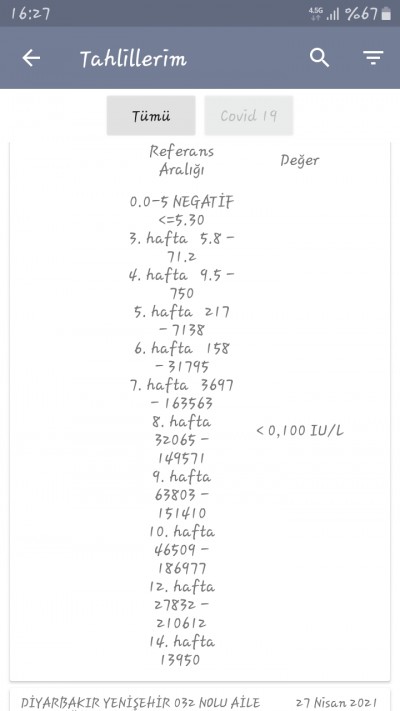 16:27
4.5G %67
Tahlillerim
Tümü Covid 19
Referans
Aralığı
Değer
0.0-5 NEGATİF
<=5.30
3. hafta 5.8 -
71.2
4. hafta 9.5 -
750
5. hafta 217
- 7138
6. hafta 158
- 31795
7. hafta 3697
- 163563
8. hafta
32065 -
149571
< 0,100 IU/L
9. hafta
63803 -
151410
10. hafta
46509 -
186977
12. hafta
27832 -
210612
14. hafta
13950
DİYARBAKIR YENİŞEHİR 032 NOLU AİLE 27 Nisan 2021